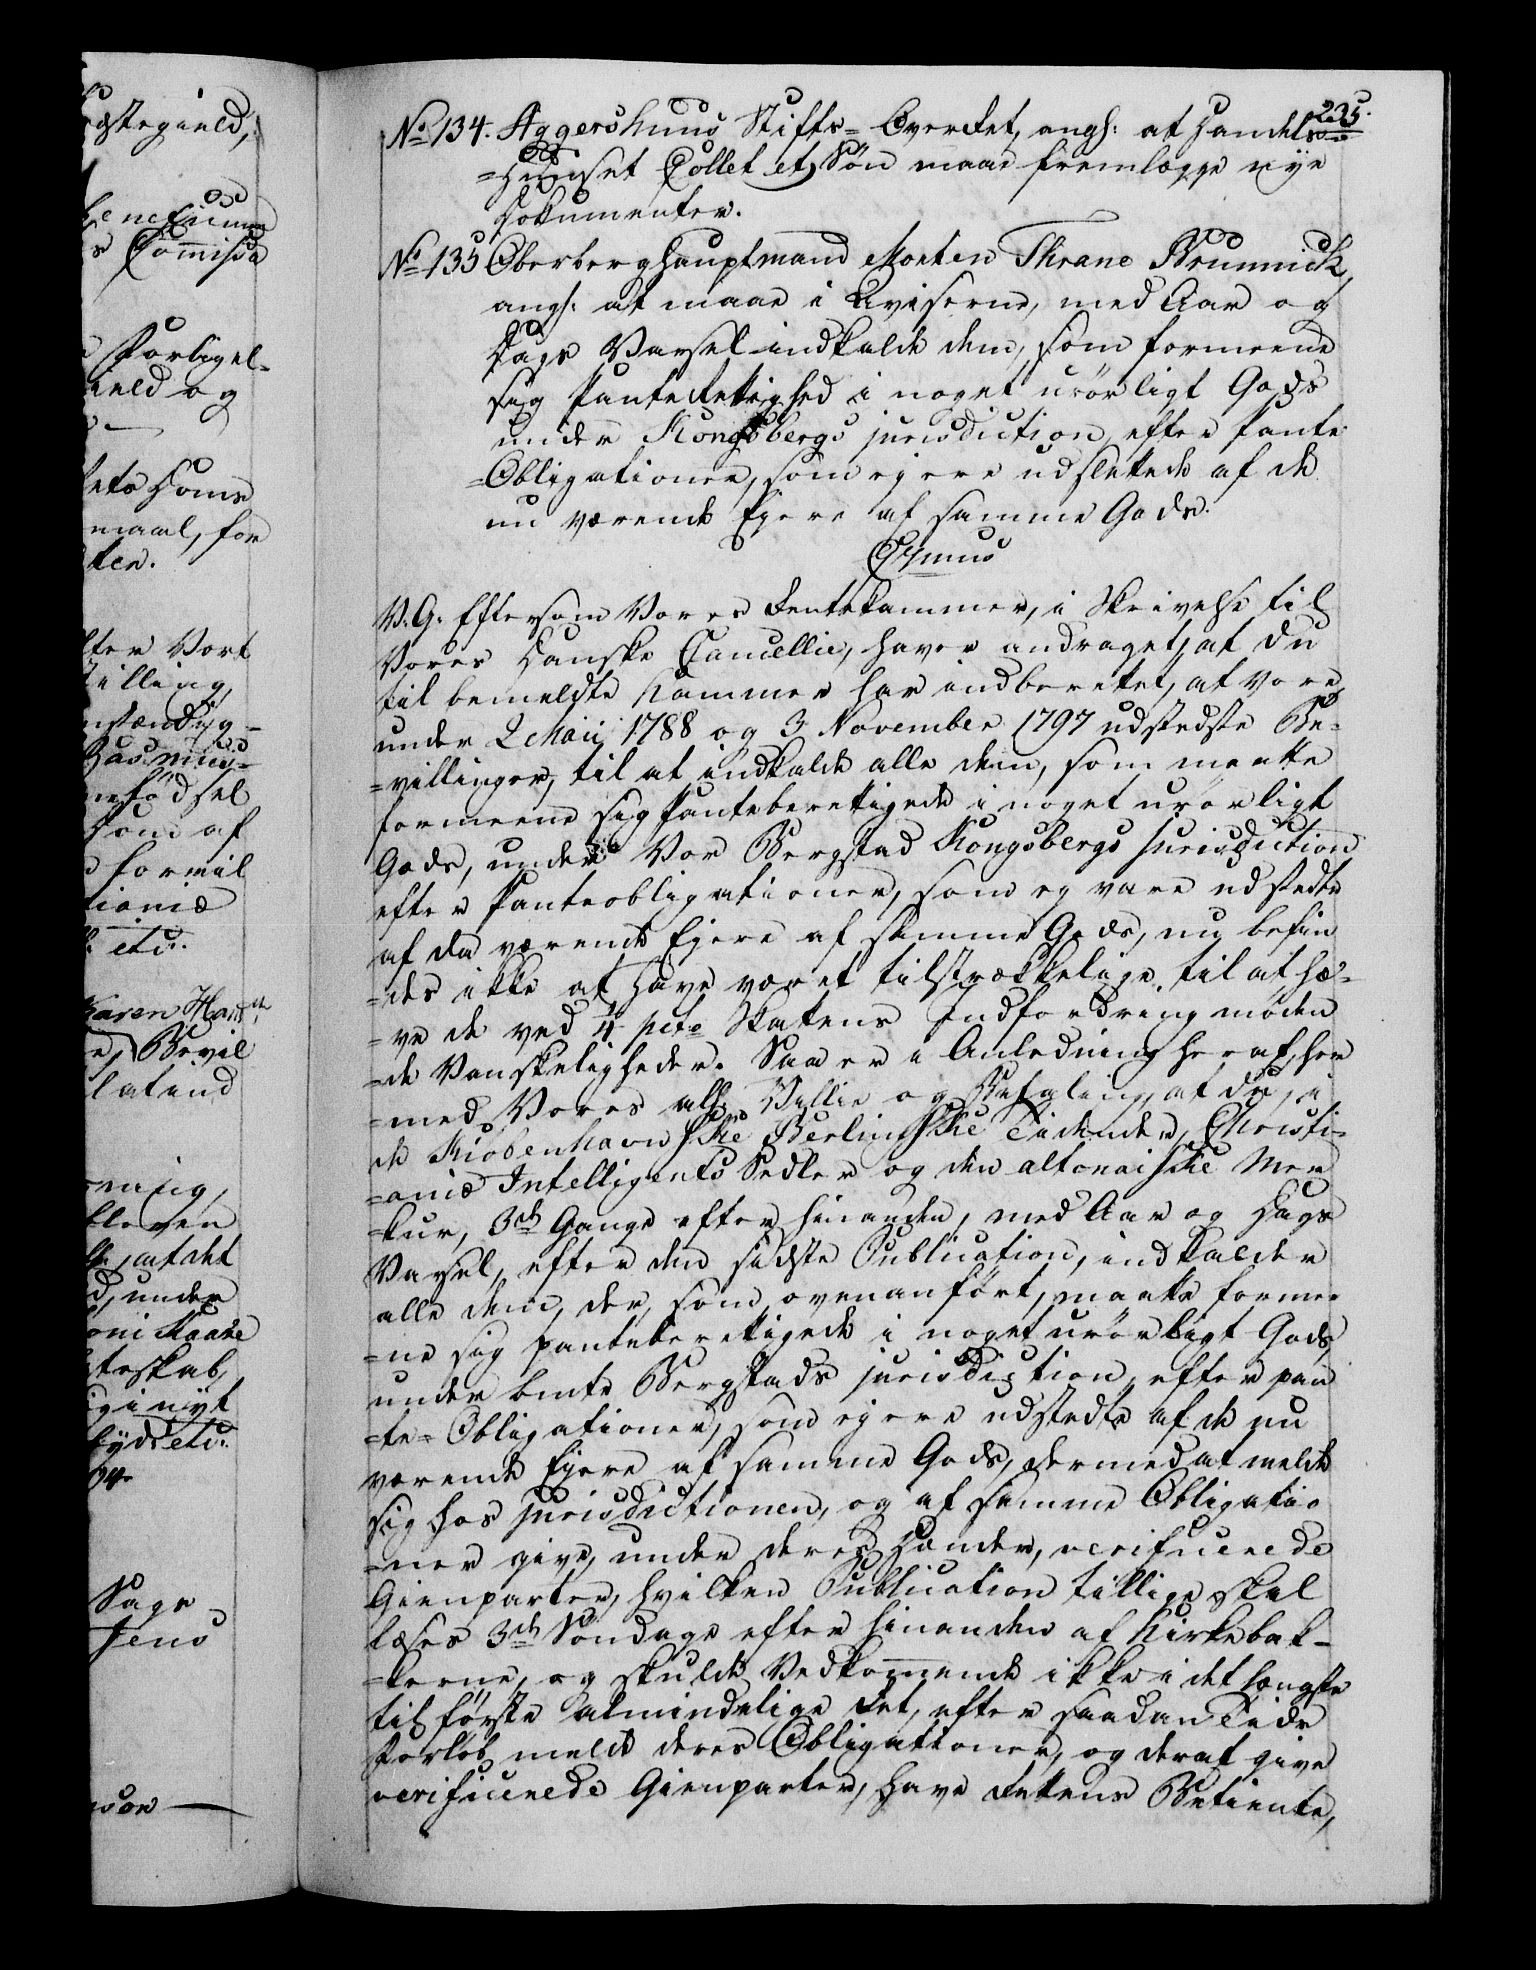 235.
No 134. Aggershuus Stifts=Overret, angl: at Handels
=Huuset Collet et Søn maae fremlægge nye
Dokumenter.
No 135 Oberberghauptmand Morten Thrane Brunnick,
angl: at maae i Aviserne, med Aar og
Dags Varsel indkalde dem, som formeene
sig Panterettighed i noget urørligt Gods
under Kongsbergs jurisdiction, efter Pante
=Obligationer, som ej ere udstædede af de
nu værende Ejere af samme Gods.
V. G. Eftersom Vores Rentekammer, i Skrivelse til
Vores Danske Cancellie, haver andraget, at du
til bemeldte Kammer har indberetet, at vore
under 2 Maii 1788 og 3 November 1797 udstedte Be=
=villinger, til at indkalde alle dem, som maatte
formeene sig Panteberettigede i noget urørligt
Gods, under Vor Bergstad Kongsbergs Jurisdiction
efter Panteobligationer, som ej vare udstedte
af da værende Ejere af samme Gods, nu befin
=des ikke at have været tilstrækkelige til at hæ=
=ve de ved 4 pcto Skatens Indfordring møden
=de Vanskeligheder. Saa er i Anledning heraf, her
=med Vores all: Villie og Befaling, at du, i
de Kiøbenhavnske Berlinske Tidender, Christi=
=aniæ Intelligents Sedler og den altonaiske Mer
=kur, 3de Gange efter hinanden, med Aar og Dags
Varsel, efter den sidste Publication, indkalder
alle dem, der, som ovenanført, maatte forme
=ne sig panteberettigede i noget urørligt Gods
under bmte Bergstads jurisdiction, efter pan
=te=Obligationer, som ej ere udstedte af de nu
værende Ejere af samme Gods, dermed at melde
sig hos jurisdictionen, og af samme Obligatio
=ner give, under deres Hænder, verificerede
Gienparter, hvilken Publication tillige skal
læses 3de Søndage efter hinanden af Kirkebak=
=kerne, og skulde Vedkommende ikke i det længste
til første almindelige Ret, efter saadan Tids
Forløb melde deres Obligationer, og deraf give
verificerede Gienparter, have Rettens Betiente,